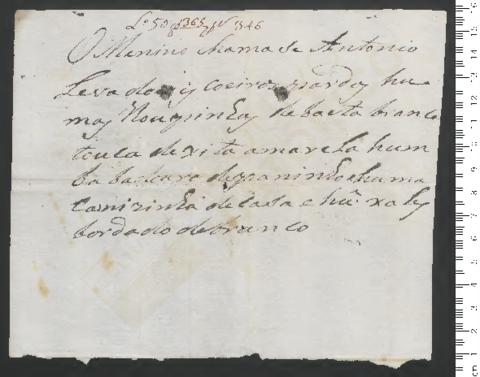 Lº 50 f 365 nº 1346
O Menino chamase Antonio
Leva dois coeiros pardos hu
mas Rouprinhas de baeta branca
touca de xita amarela hum
ba badouro de paninho huma
camizinha de caça e hũ xale
bordado de branco